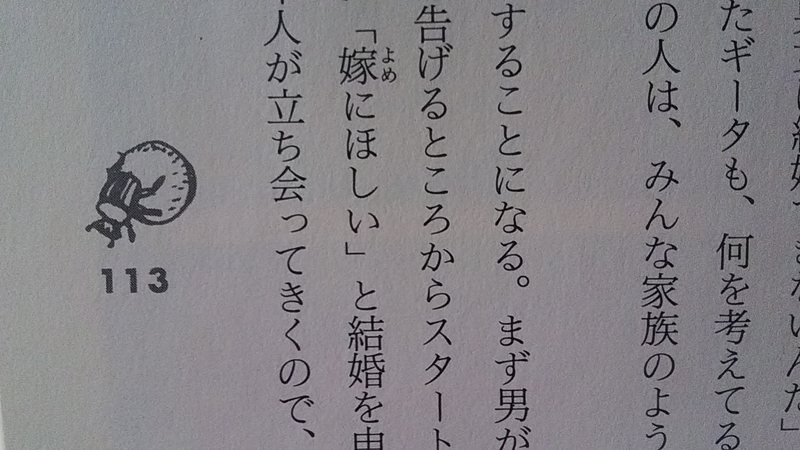 結婚できないんだ」
たギータも、何を考えてる
の人は、みんな家族のよう
することになる。まず男が
告げるところからスタート
「嫁にほしい」と結婚を申
よめ
人が立ち会ってきくので、
113